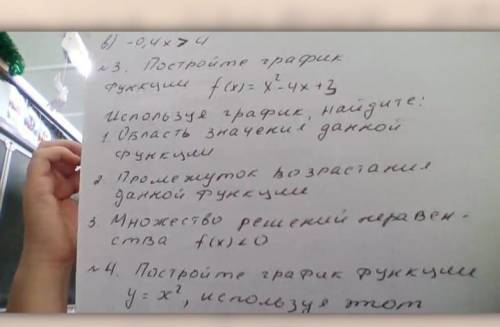 в) -0,4x > 4
№3. Постройте график
функции f(x) = x² - 4x + 3
Используя график, найдите:
1. Область значения данной
функции
2. Промежуток возрастания
данной функции
3. Множество решений неравен-
ства f(x) < 0
№4. Постройте график функции
y = x², используя этот